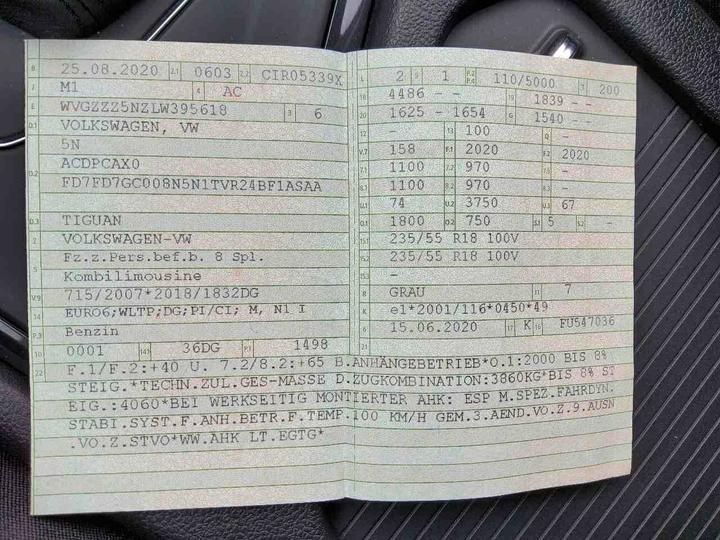 B 25.08.2020 2.1 0603 2.2 CIR05339X
J M1 4 AC
E WVGZZZ5NZLW395618 3 6
D.1 VOLKSWAGEN, VW
5N
D.2 ACDPCAX0
FD7FD7GC008N5N1TVR24BF1ASAA
D.3 TIGUAN
2 VOLKSWAGEN-VW
5 Fz.z.Pers.bef.b. 8 Spl.
Kombilimousine
V.9 715/2007*2018/1832DG
14 EURO6;WLTP;DG;PI/CI; M, N1 I
P.3 Benzin
10 0001 14.1 36DG P.1 1498
L 2 9 1 P.2 P.4 110/5000 T 200
18 4486 - - 19 1839 - -
20 1625 - 1654 G 1540 - -
12 - 13 100 Q -
V.7 158 F.1 2020 F.2 2020
7.1 1100 7.2 970 7.3 -
8.1 1100 8.2 970 8.3 -
U.1 74 U.2 3750 U.3 67
O.1 1800 O.2 750 S.1 5 S.2 -
15.1 235/55 R18 100V
15.2 235/55 R18 100V
15.3 -
R GRAU 11 7
K e1*2001/116*0450*49
6 15.06.2020 17 K 16 FU547036
21
22 F.1/F.2:+40 U. 7.2/8.2:+65 B.ANHÄNGEBETRIEB*O.1:2000 BIS 8%
STEIG.*TECHN.ZUL.GES-MASSE D.ZUGKOMBINATION:3860KG*BIS 8% ST
EIG.:4060*BEI WERKSEITIG MONTIERTER AHK: ESP M.SPEZ.FAHRDYN.
STABI.SYST.F.ANH.BETR.F.TEMP.100 KM/H GEM.3.AEND.VO.Z.9.AUSN
.VO.Z.STVO*WW.AHK LT.EGTG*